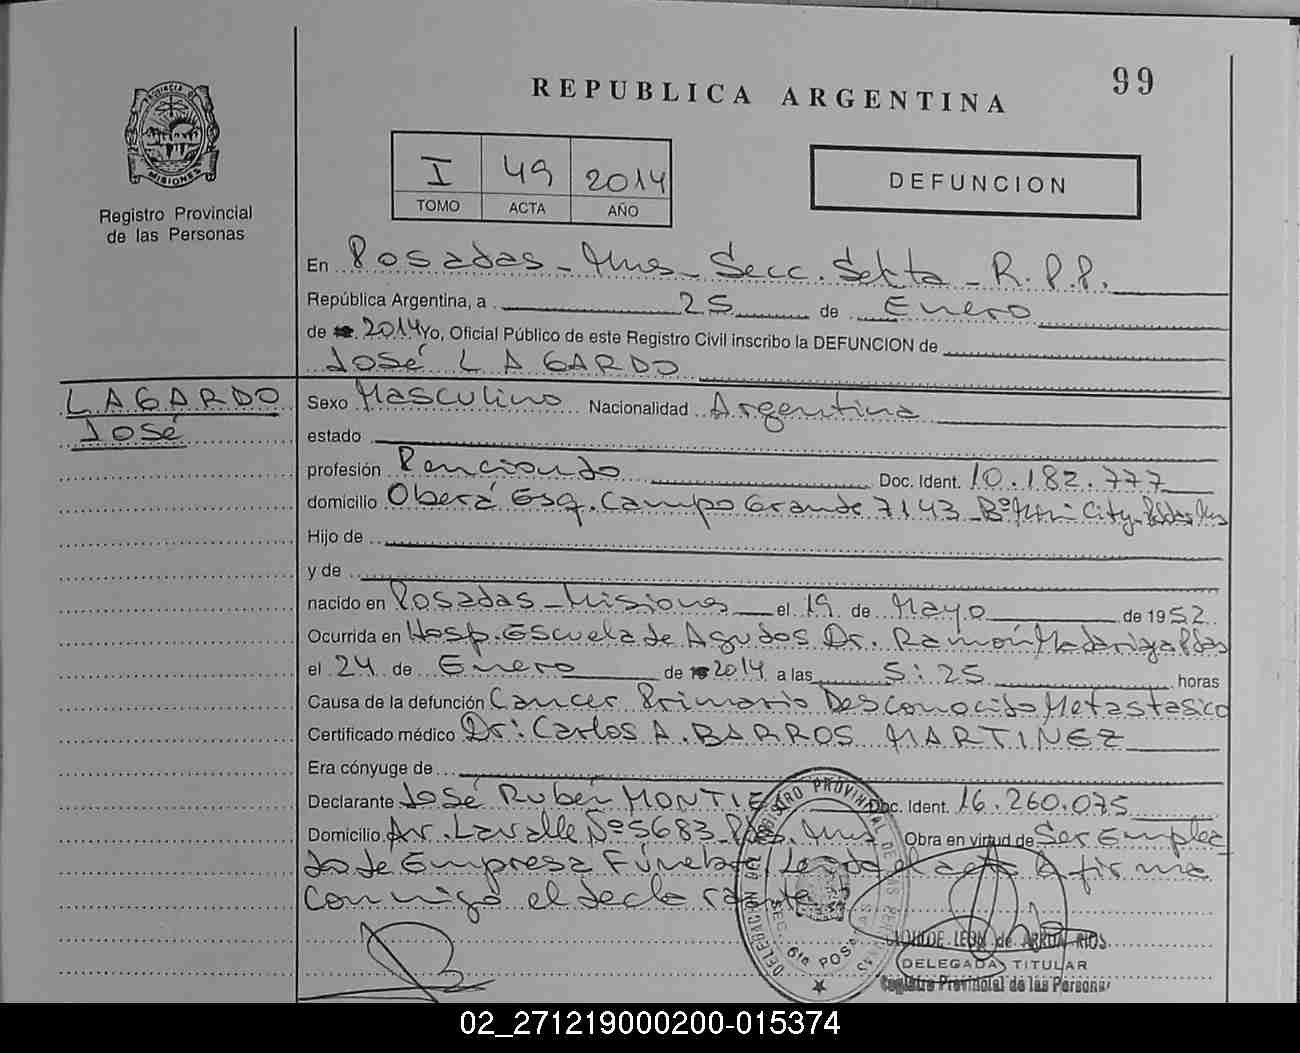 99
REPUBLICA ARGENTINA
PROVINCIA DE
MISIONES
Registro Provincial
de las Personas
I 49 2014
TOMO ACTA AÑO
DEFUNCION
En Posadas - Mnes - Secc. Sexta - R.P.P.
República Argentina, a 25 de Enero
de 2014 Yo, Oficial Público de este Registro Civil inscribo la DEFUNCION de
José LAGARDO
LAGARDO
José
Sexo Masculino Nacionalidad Argentina
estado
profesión Pencionado Doc. Ident. 10.182.777
domicilio Oberá Esq. Campo Grande 7143 - Bº City - Pdas Mns
Hijo de
y de
nacido en Posadas - Misiones el 19 de Mayo de 1952
Ocurrida en Hosp. Escuela de Agudos Dr. Ramón Madariaga Pdas
el 24 de Enero de 2014 a las 5:25 horas
Causa de la defunción Cancer Primario Desconocido Metastasico
Certificado médico Dr: Carlos A. BARROS MARTINEZ
Era cónyuge de
Declarante José Rubén MONTIE Doc. Ident. 16.260.075
Domicilio Av. Lavalle Nº 5683 - Pdas. Mns Obra en virtud de Ser Emplea
do de Empresa Fúnebre/ Leida el acta firma
conmigo el declarante
REGISTRO PROVINCIAL DE LAS PERSONAS
DELEGACION
SEC. 6ta POSADAS
LEON de ARRUA RIOS
DELEGADA TITULAR
Registro Provincial de las Personas
02_271219000200-015374